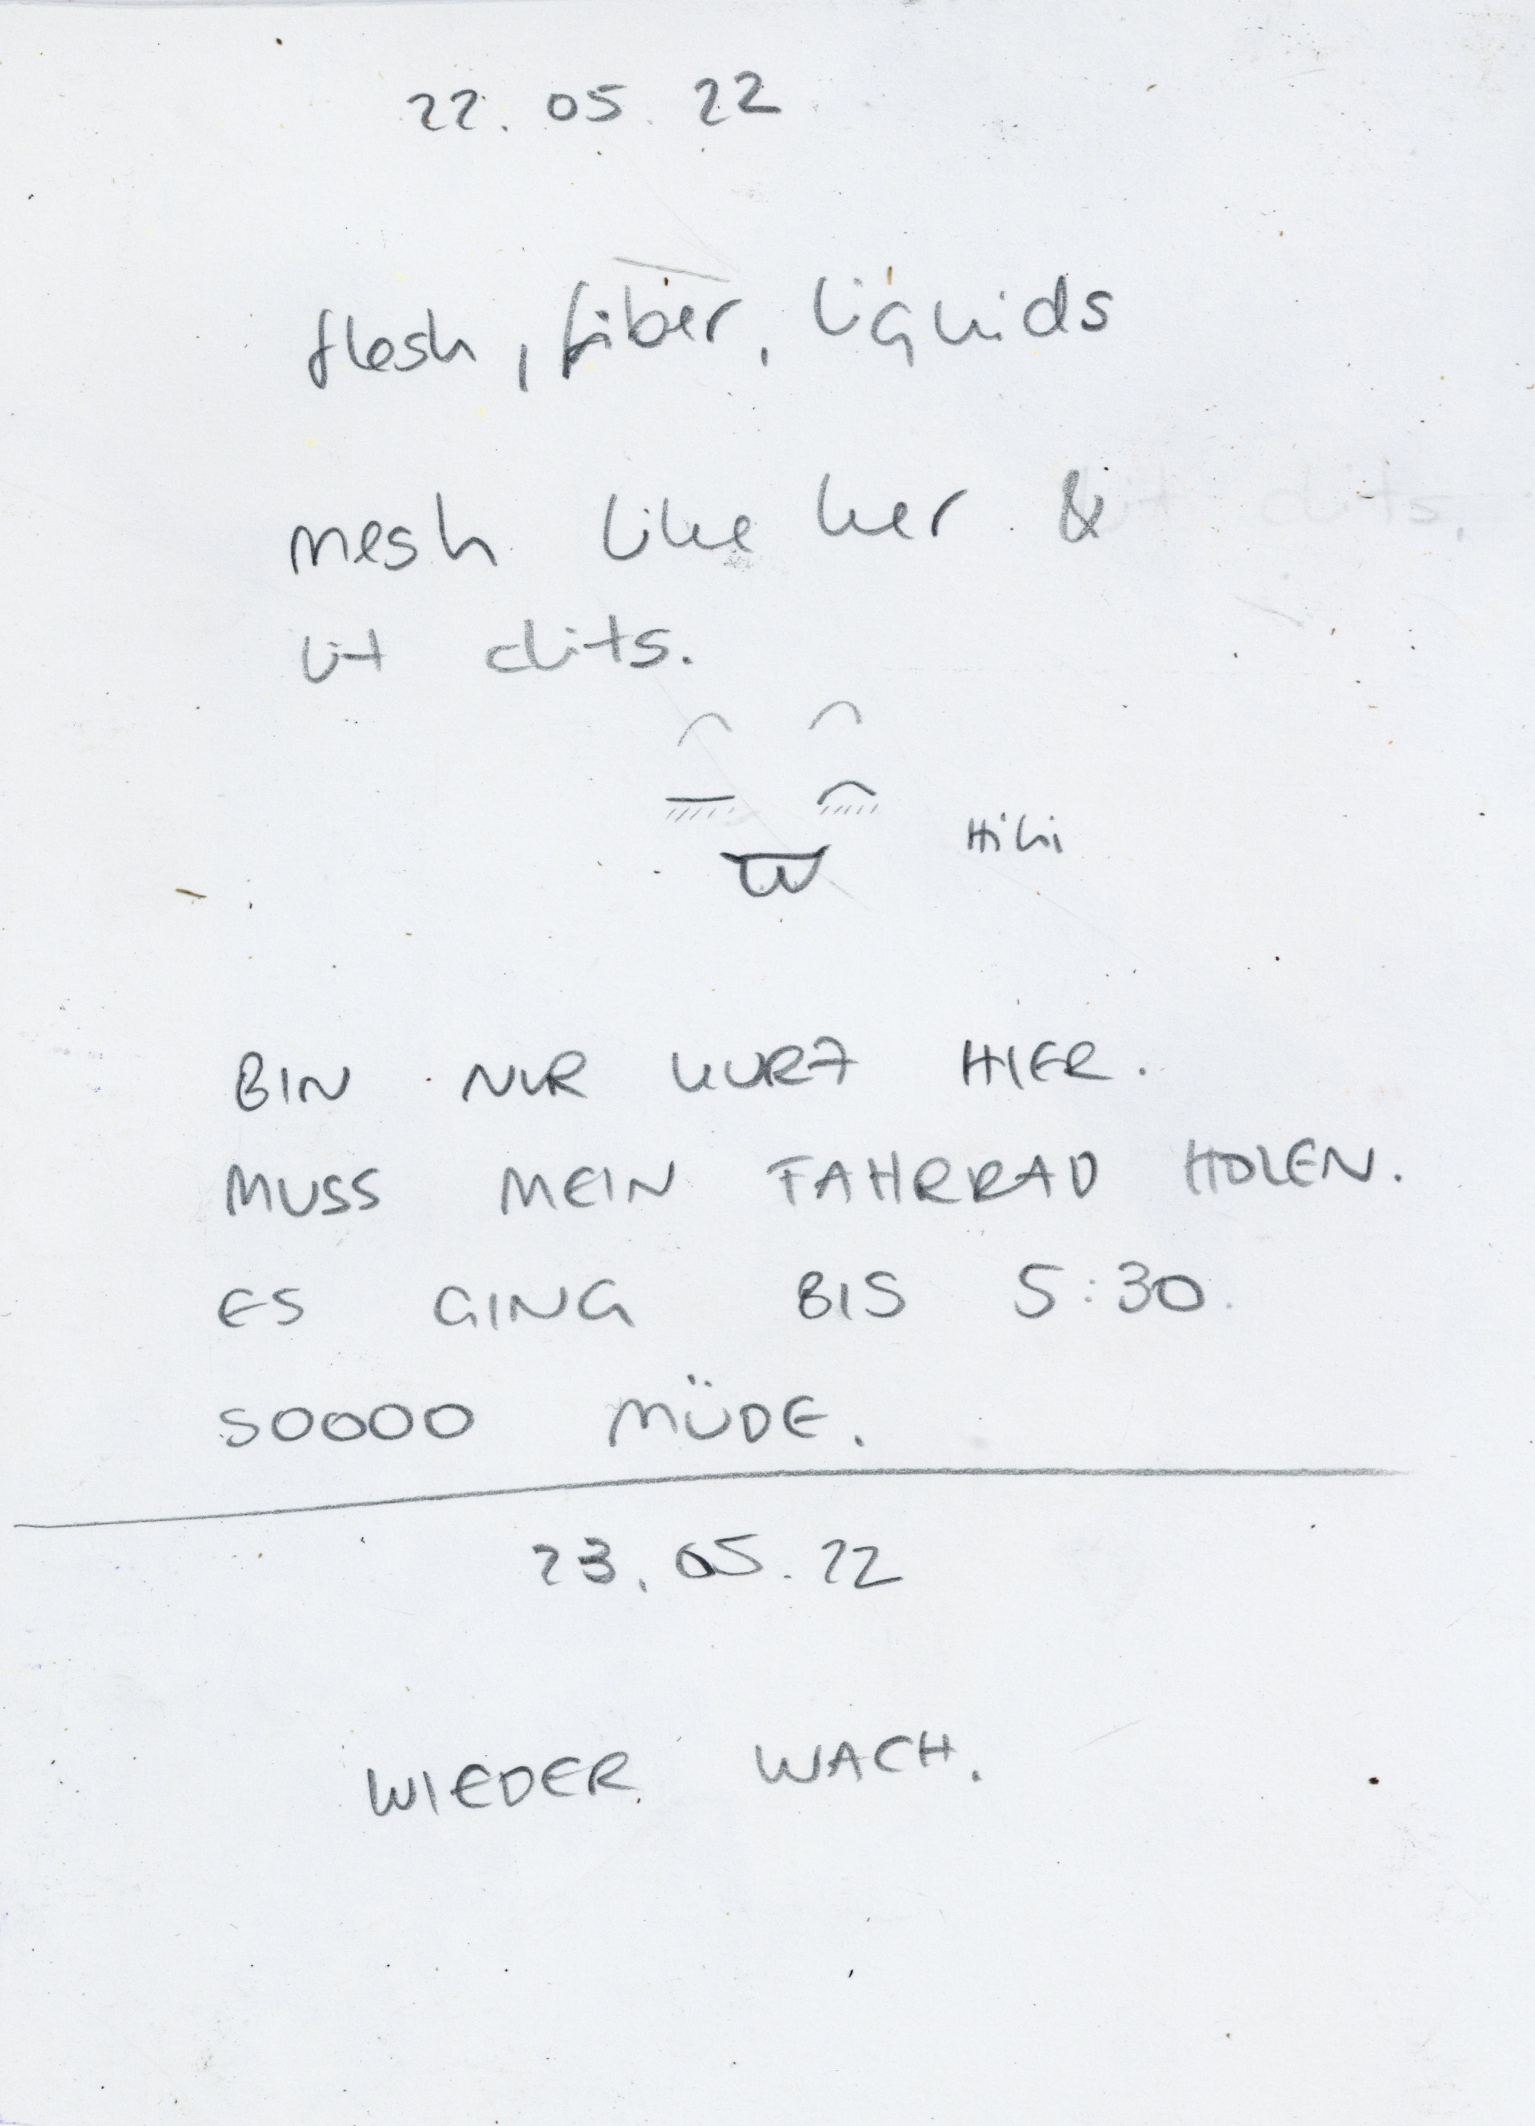 22.05.22
flesh, fiber, liquids
mesh like her &
lit clits.
Hihi
BIN NUR KURZ HIER.
MUSS MEIN FAHRRAD HOLEN.
ES GING BIS 5:30.
SOOOO MÜDE.
23.05.22
WIEDER WACH.